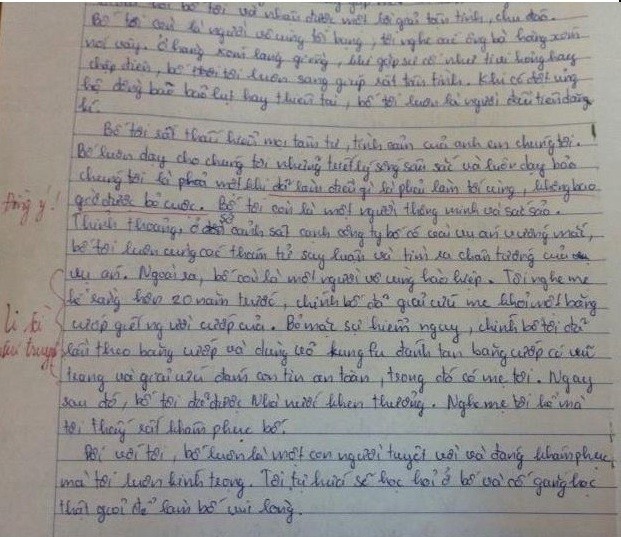 với bố tôi và nhận được một lời giải tận tình, chu đáo.
Bố tôi còn là người vô cùng tốt bụng, tôi nghe các ông bà hàng xóm
nói vậy. Ở hàng xóm láng giềng, khi gặp sự cố như tivi hỏng hay
chập điện, bố tôi luôn sang giúp rất tận tình. Khi có đợt ủng
hộ đồng bào bão lụt hay thiên tai, bố tôi luôn là người đầu tiên đăng
kí.
Bố tôi rất thấu hiểu mọi tâm tư, tình cảm của anh em chúng tôi.
Bố luôn dạy cho chúng tôi những triết lý sống sâu sắc và luôn dạy bảo
chúng tôi là phải một khi đã làm điều gì là phải làm tới cùng, không bao
Đồng ý! giờ được bỏ cuộc. Bố tôi còn là một người thông minh và sắc sảo.
Thỉnh thoảng, ở sở cảnh sát cạnh công ty bố có vài vụ án vướng mắc,
bố tôi luôn cùng các thám tử suy luận và tìm ra chân tướng của
vụ án. Ngoài ra, bố còn là một người vô cùng hào hiệp. Tôi nghe mẹ
kể rằng hơn 20 năm trước, chính bố đã giải cứu mẹ khỏi một băng
Li kì cướp giết người cướp của. Bỏ mặc sự hiểm nguy, chính bố tôi đã
truyện lần theo băng cướp và dùng võ kungfu đánh tan băng cướp có vũ
trang và giải cứu đám con tin an toàn, trong đó có mẹ tôi. Ngay
sau đó, bố tôi đã được Nhà nước khen thưởng. Nghe mẹ tôi kể mà
tôi thấy rất khâm phục bố.
Đối với tôi, bố luôn là một con người tuyệt vời và đáng khâm phục
mà tôi luôn kính trọng. Tôi tự hứa sẽ học hỏi ở bố và cố gắng học
thật giỏi để làm bố vui lòng.